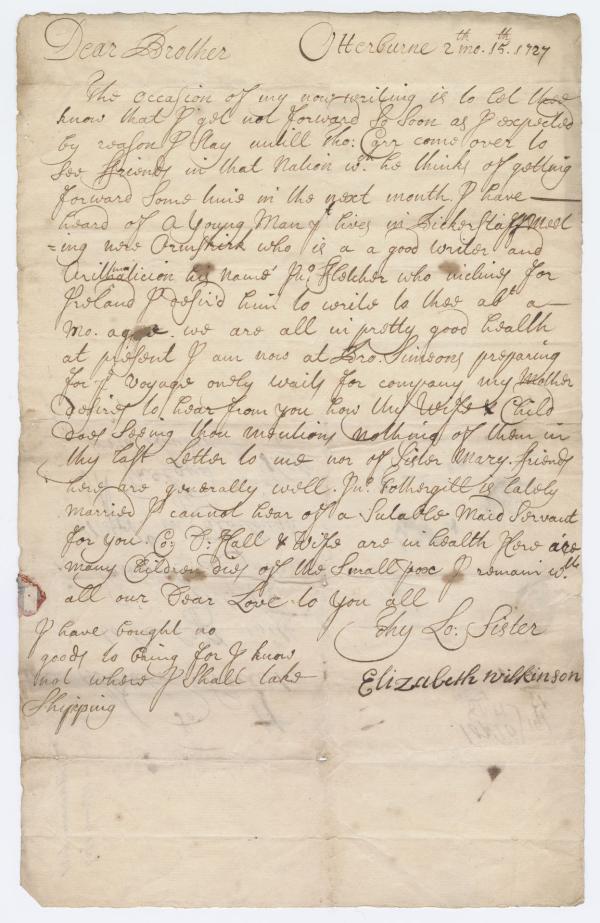 Dear Brother Otterburne 2th mo. 15th. 1727
The occasion of my now writing is to let thee
know that I get not forward so soon as I expected
by reason I stay untill Tho: Carr come over to
see ffriends in that Nation wch. he thinks of getting
forward some time in the next month. I have
heard of a Young Man yt lives in Bickerstaff Meet
=ing nere Ormskirk who is a a good writer and
Arithmaticion his name Jno. Fletcher who inclines for
Ireland I desir'd him to write to thee abt. a
Mo. agoe. we are all in pretty good health
at present I am now at Bro. Simeons preparing
for ye voyage onely waits for company my Mother
desires to hear from you how thy Wife & Child
does seeing thou mentions nothing of them in
thy last Letter to me nor of Sister Mary. friends
here are generally well. Jno. Fothergill is lately
married I cannot hear of a Sutable Maid Servant
for you. Co: Hall & Wife are in health Here are
many Children dies of the Small pox I remain wth.
all our Dear Love to You all
I have bought no Thy Lo: Sister
goods to bring for I know
not where I shall take Elizabeth Wilkinson
Shipping